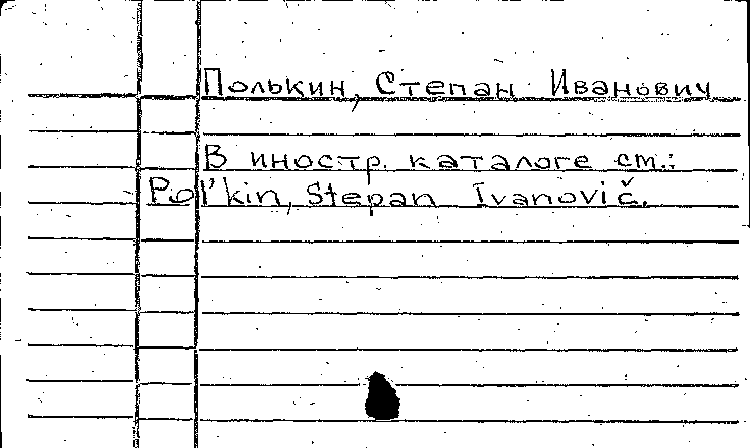 Полькин, Степан Иванович
В иностр. каталоге см.:
Pol'kin, Stepan Ivanovič.